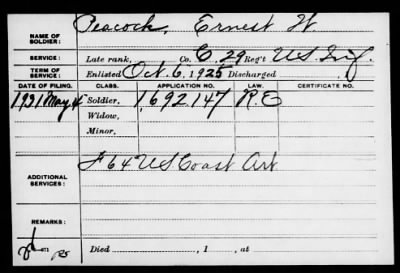 NAME OF SOLDIER: Peacock, Ernest W.
SERVICE: Late rank, Co. C, 29 Reg't U.S. Inf.
TERM OF SERVICE: Enlisted Oct. 6, 1925 Discharged
DATE OF FILING. CLASS. APPLICATION NO. LAW. CERTIFICATE NO.
1931 May 4 Soldier, 1,692,147 R.E
Widow,
Minor,
ADDITIONAL SERVICES: F 64 U S Coast Art
REMARKS:
Died , 1 , at